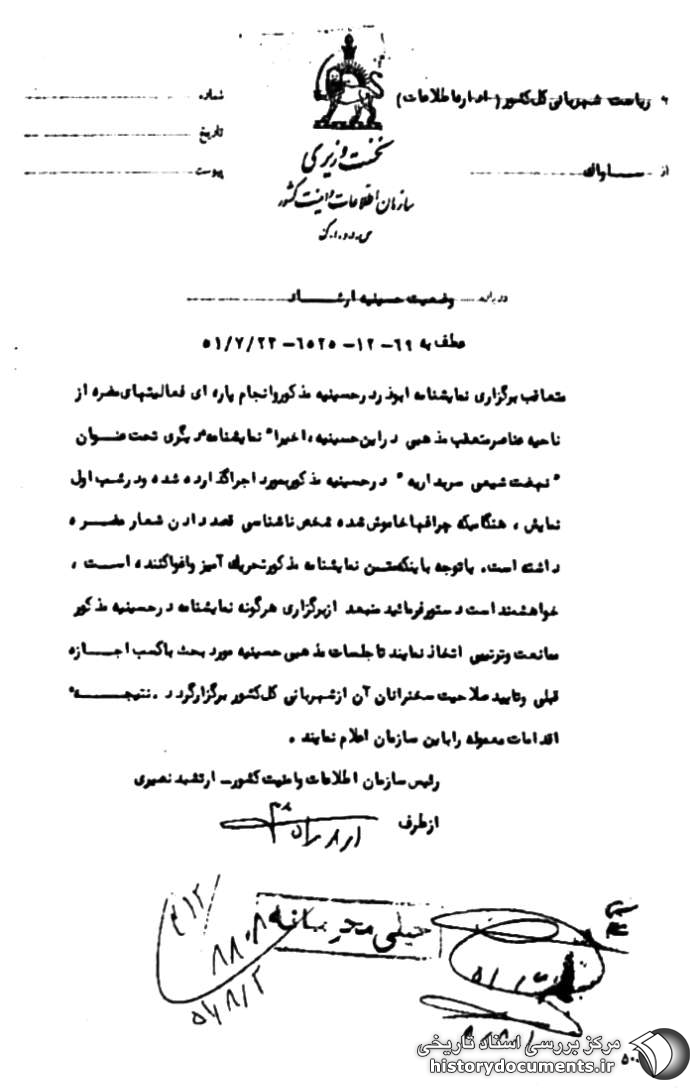 به ریاست شهربانی کل کشور (اداره اطلاعات)
شماره
تاریخ
از ساواک
پیوست
نخست وزیری
سازمان اطلاعات و امنیت کشور
س.ا.و.ا.ک
درباره وضعیت حسینیه ارشاد
عطف به ۶۹-۱۲-۶۵۲۵-۵۱/۷/۲۳
متعاقب برگزاری نمایشنامه ابوذر در حسینیه مذکور و انجام پاره ای فعالیتهای مضره از
ناحیه عناصر متعصب مذهبی در این حسینیه، اخیرا" نمایشنامه دیگری تحت عنوان
"نهضت شیعی سربداریه" در حسینیه مذکور بمورد اجرا گذارده شده و در شب اول
نمایش، هنگامیکه چراغها خاموش شده شخص ناشناسی قصد دادن شعار مضره
داشته است. با توجه باینکه متن نمایشنامه مذکور تحریک آمیز و اغواکننده است،
خواهشمند است دستور فرمائید منبعد از برگزاری هرگونه نمایشنامه در حسینیه مذکور
ممانعت و ترتیبی اتخاذ نمایند تا جلسات مذهبی حسینیه مورد بحث با کسب اجازه
قبلی و تایید صلاحیت سخنرانان آن از شهربانی کل کشور برگزار گردد. نتیجه
اقدامات معموله را باین سازمان اعلام نمایند.
رئیس سازمان اطلاعات و امنیت کشور - ارتشبد نصیری
از طرف
۵۱/۸/۱
خیلی محرمانه
۳۱۲
۸۸۰۸
۵۱/۸/۲
مرکز بررسی اسناد تاریخی
historydocuments.ir